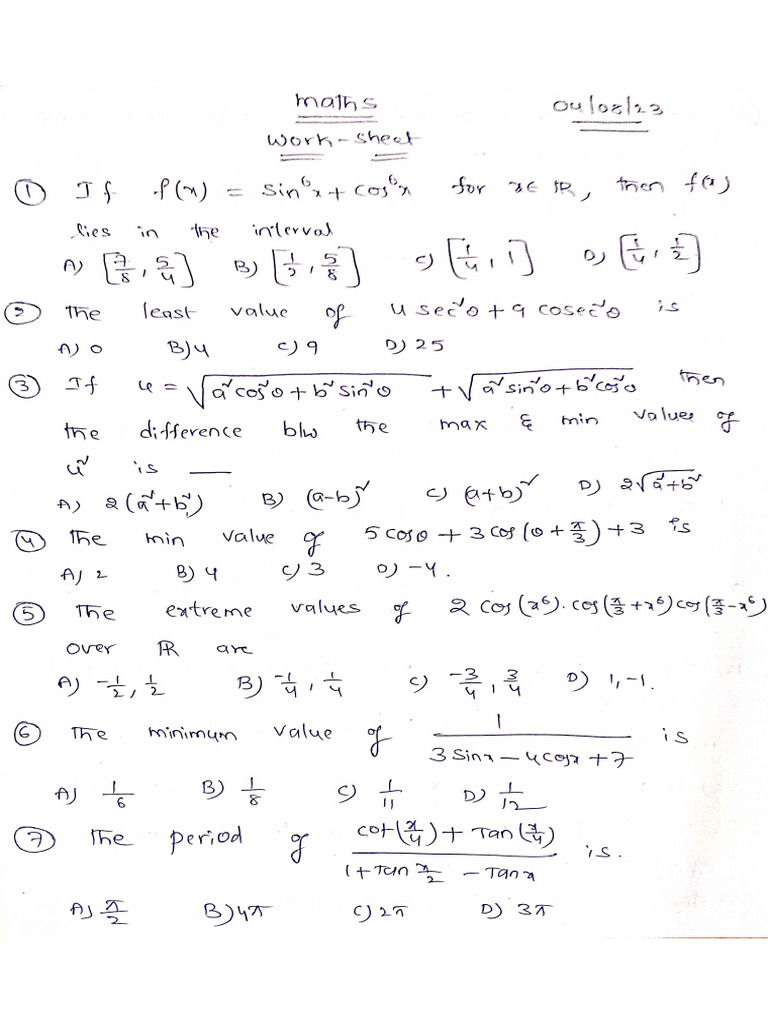 maths 04/08/23
Work-sheet
① If f(x) = sin⁶x + cos⁶x for x∈ℝ, then f(x)
lies in the interval
A) [7/8, 5/4] B) [1/2, 5/8] C) [1/4, 1] D) [1/4, 1/2]
② The least value of 4 sec²θ + 9 cosec²θ is
A) 0 B) 4 C) 9 D) 25
③ If u = √(a²cos²θ + b²sin²θ) + √(a²sin²θ + b²cos²θ) then
the difference b/w the max & min values of
u² is ___
A) 2(a²+b²) B) (a-b)² C) (a+b)² D) 2√(a²+b²)
④ The min value of 5cosθ + 3cos(θ + π/3) + 3 is
A) 2 B) 4 C) 3 D) -4.
⑤ The extreme values of 2 cos(x⁶).cos(π/3 + x⁶) cos(π/3 - x⁶)
over ℝ are
A) -1/2, 1/2 B) -1/4, 1/4 C) -3/4, 3/4 D) 1, -1.
⑥ The minimum value of 1/(3 sinx - 4cosx + 7) is
A) 1/6 B) 1/8 C) 1/11 D) 1/12
⑦ The period of (cot(x/4) + Tan(x/4))/(1 + Tan x/2 - Tanx) is.
A) π/2 B) 4π C) 2π D) 3π